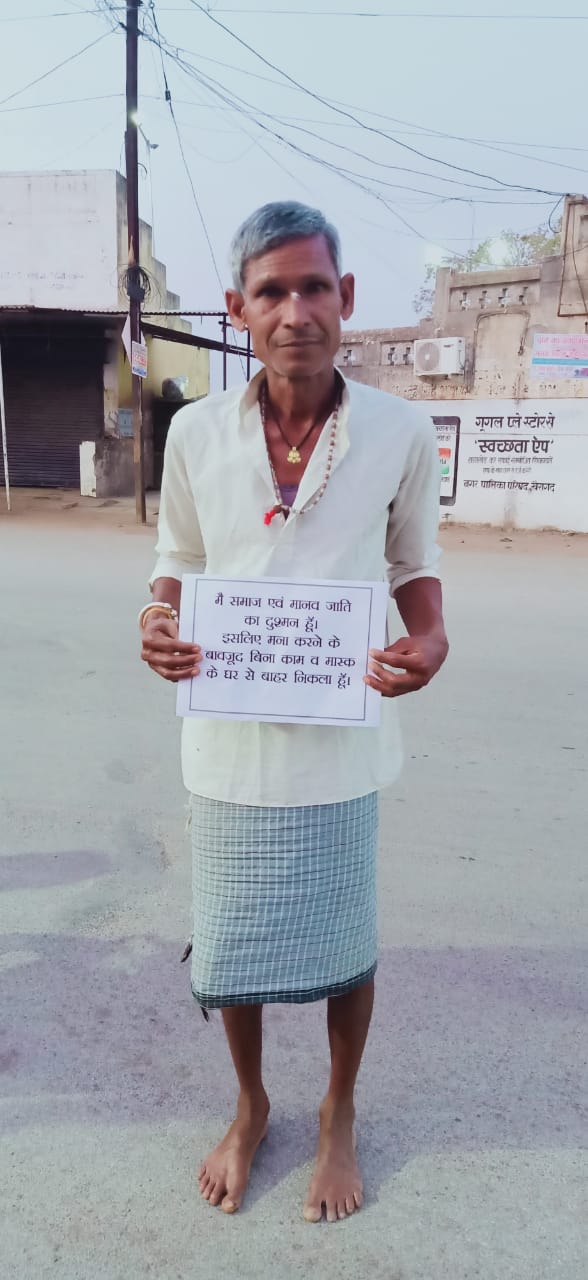 मै समाज एवं मानव जाति
का दुश्मन हूॅं।
इसलिए मना करने के
बावजूद बिना काम व मास्क
के घर से बाहर निकला हूॅं।
गूगल प्ले स्टोर से
"स्वच्छता ऐप"
नगर पालिका परिषद,